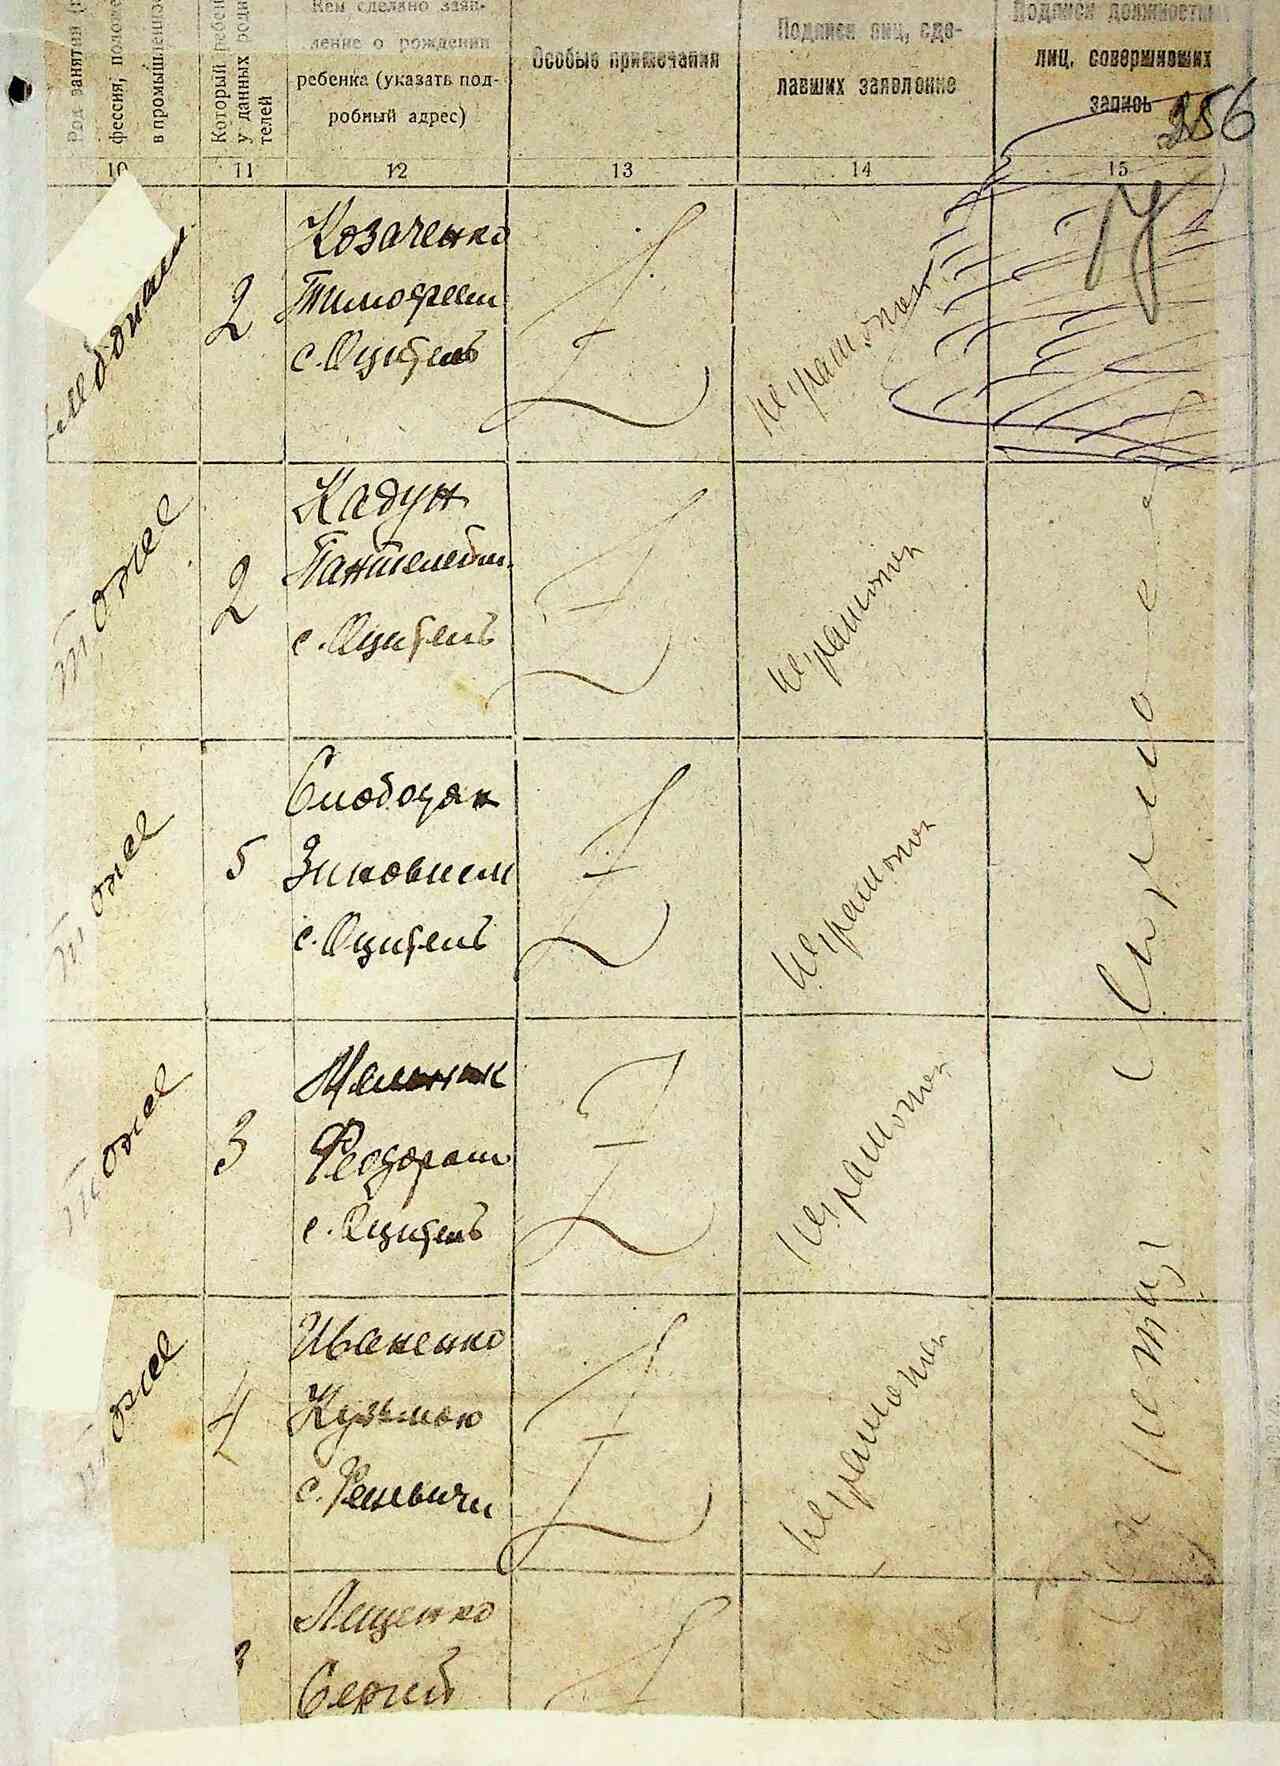 Род занятий
фессия, положе
в промышленнос
Который ребен
у данных роди
телей
Кем сделано заяв-
ление о рождении
ребенка (указать под-
робный адрес)
Особые примечания
Подписи лиц, сде-
лавших заявление
Подписи должностных
лиц, совершивших
запись
256
10 11 12 13 14 15
2
Козаченко
Тимофеем
с. Оцитель
неграмотен
тоже
2
Кадун
Пантелеем.
с. Оцитель
неграмотен
тоже
5
Слободян
Зиновием
с. Оцитель
неграмотен
тоже
3
Мельник
Феодорам
с. Оцитель
неграмотен
тоже
4
Иваненко
Кузьмою
с.
неграмотен
Лещенко
Сергий